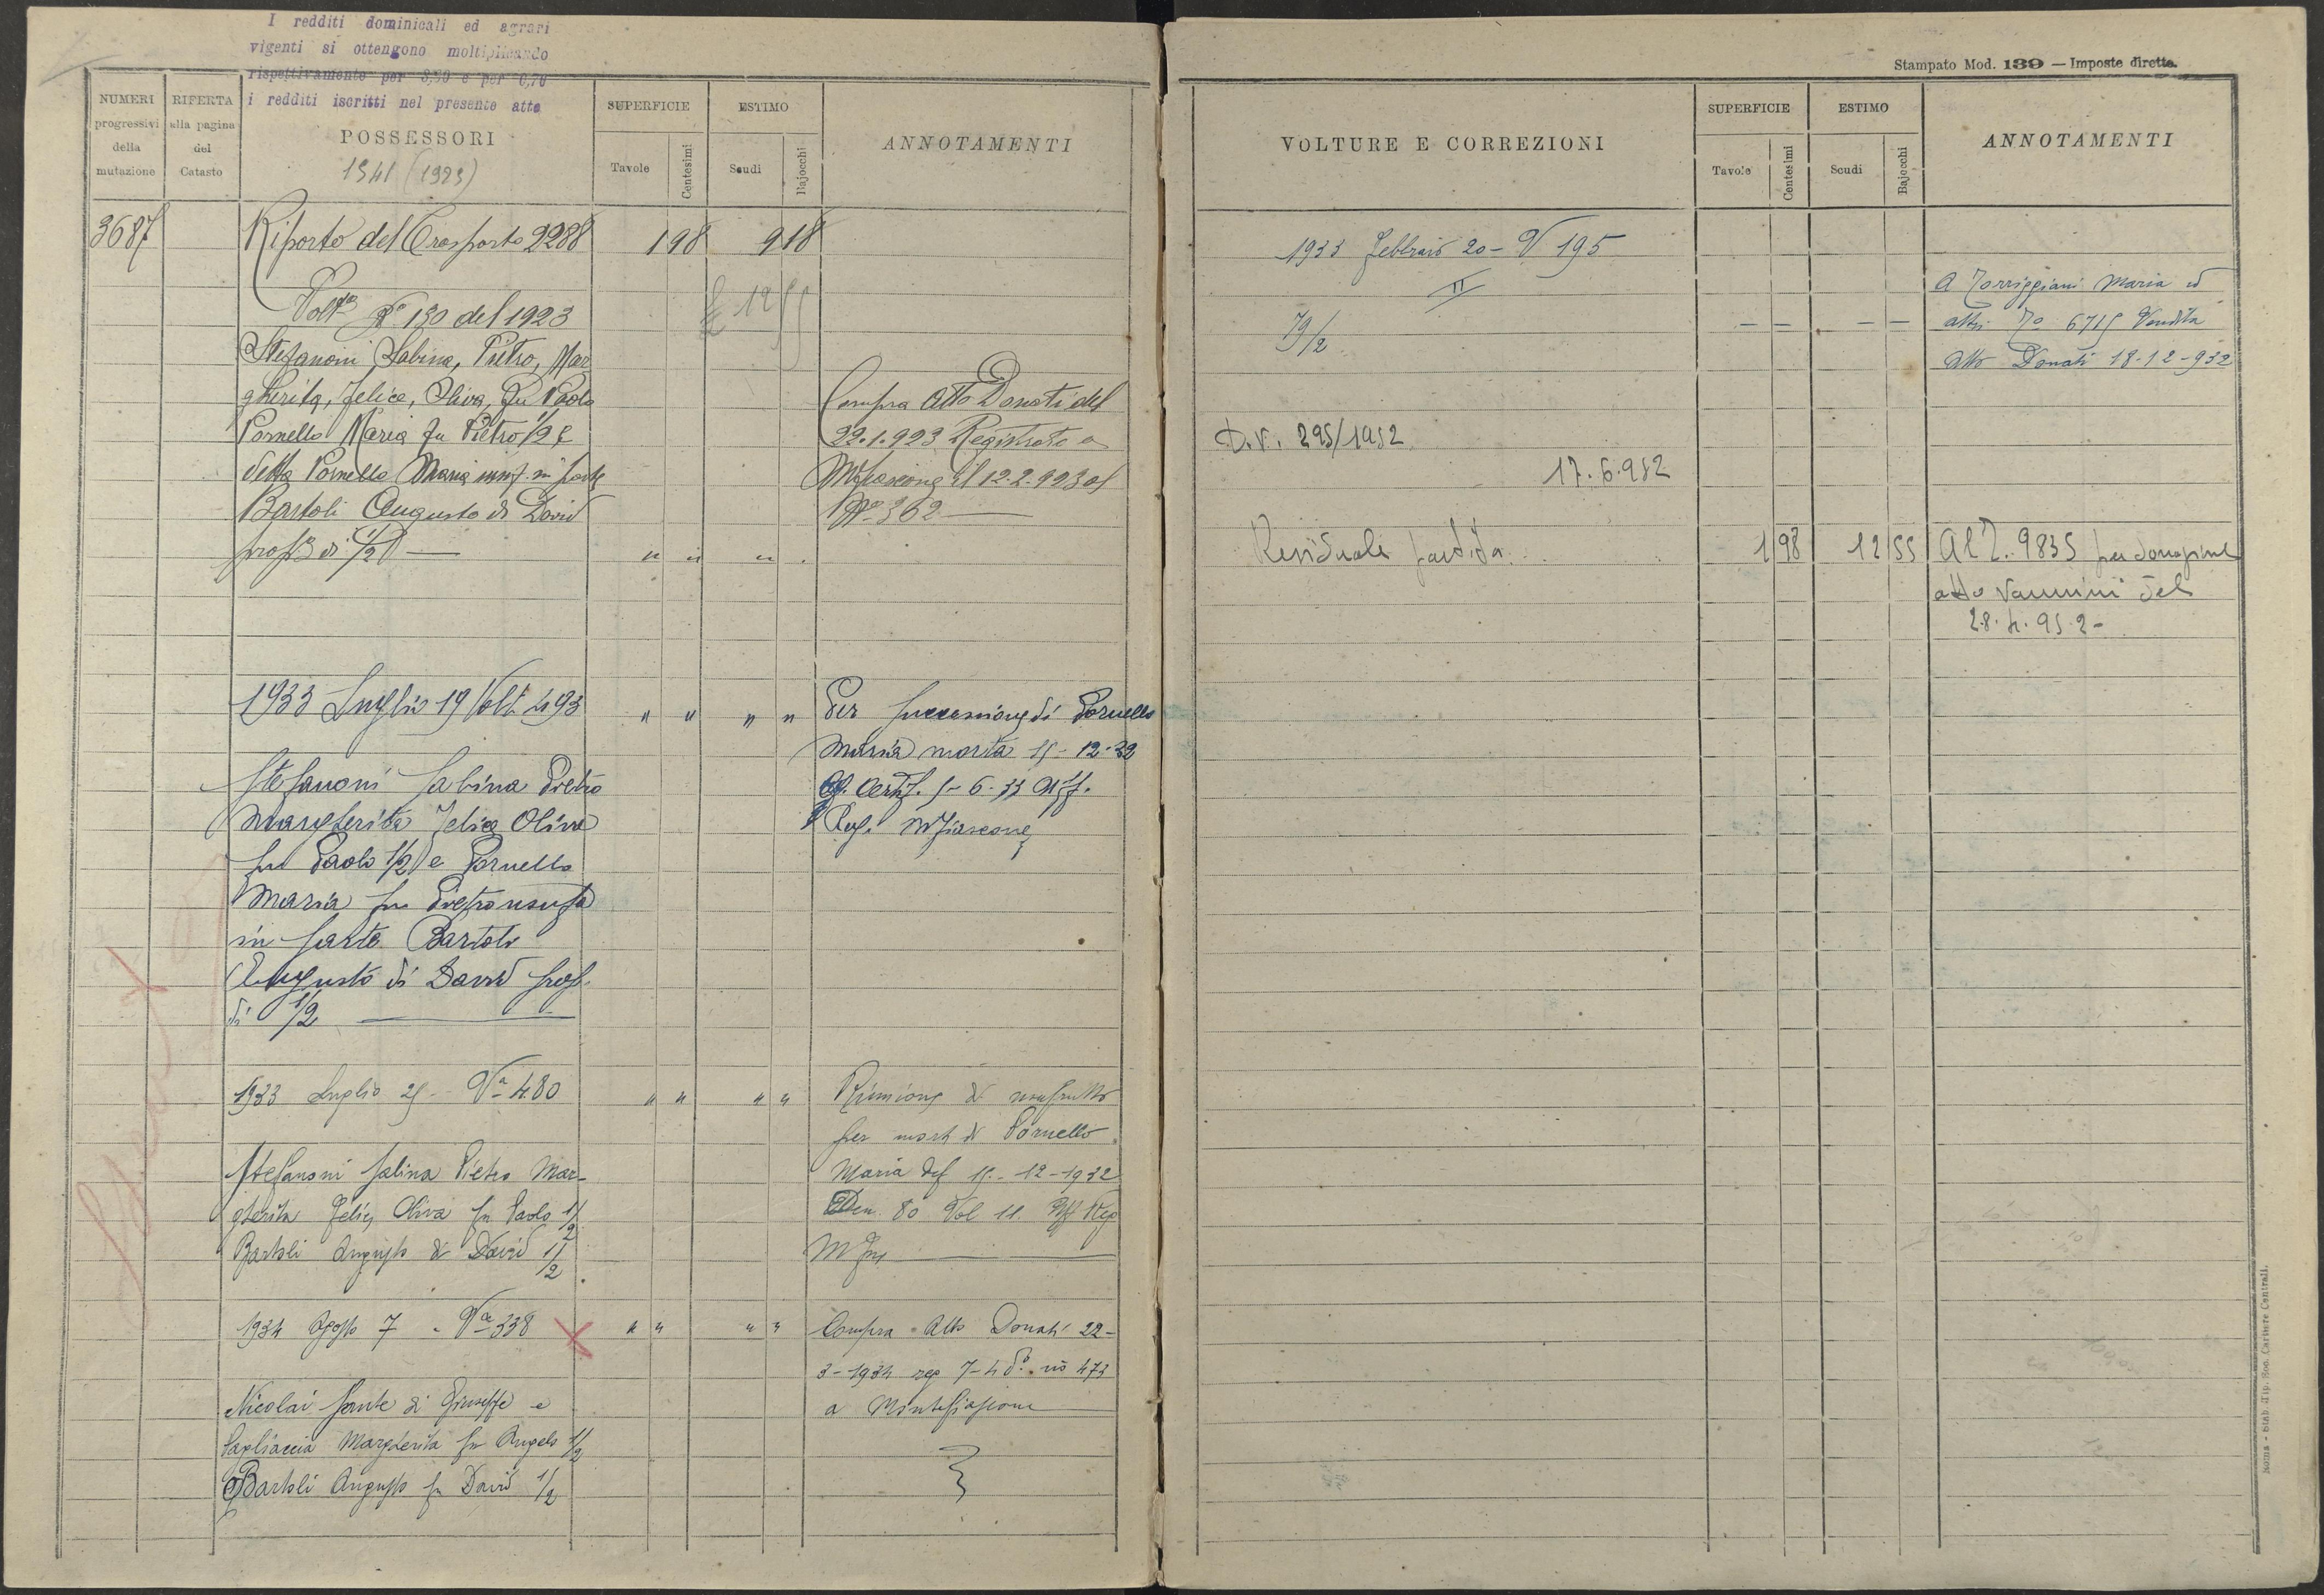 I redditi dominicali ed agrari
vigenti si ottengono moltiplicando
rispettivamente per 3,30 e per 0,70
i redditi iscritti nel presente atto
NUMERI
progressivi
della
mutazione
RIFERTA
alla pagina
del
Catasto
POSSESSORI
1541 (1923)
SUPERFICIE
Tavole
Centesimi
ESTIMO
Scudi
Bajocchi
ANNOTAMENTI
3687
Riporto del Trasporto 2288
1 98
9 18
£ 12 55
Volta No 130 del 1923
Stefanoni Sabina, Pietro, Mar
gherita, Felice, Oliva, fu Paolo
Pornello Maria fu Pietro 1/2 e
detta Pornello Maria usuf. in parte
Bartoli Augusto di David
prop. di 1/2
" " "
Compra Atto Donati del
22.1.923 Registrato a
Mfiascone il 12.2.923 al
No 362
1933 Luglio 19 Volt. 493
" " " "
Per successione di Pornello
Maria morta 15-12-32
Certif. 5-6-33 Uff.
Reg. Mfiascone
Stefanoni Sabina Pietro
Margherita Felice Oliva
fu Paolo 1/2 e Pornello
Maria fu Pietro usufa
in parte Bartoli
Augusto di David prop.
di 1/2
1933 Luglio 25 - Va 480
" " " "
Riunione di usufrutto
per morte di Pornello
Maria def 15-12-1932
Den. 80 Vol 11. Uff Reg
M Fne
Stefanoni Sabina Pietro Mar-
gherita Felice Oliva fu Paolo 1/2
Bartoli Augusto di David 1/2
1934 Agosto 7 - Va 338
" " " "
Compra Atto Donati 22-
3-1934 reg 7-4 do no 473
a Montefiascone
Nicolai Sante di Giuseppe e
Pagliaccia Margherita fu Angelo 1/2
Bartoli Augusto fu David 1/2
Stampato Mod. 139 — Imposte dirette.
VOLTURE E CORREZIONI
SUPERFICIE
Tavole
Centesimi
ESTIMO
Scudi
Bajocchi
ANNOTAMENTI
1933 Febbraio 20 - V 195
II
79/2
— — — —
A Torriggiani Maria ed
altri To 6715 Vendita
Atto Donati 18-12-932
D.V. 295/1952
17.6.952
Residuale partita
1 98
12 55
Al T. 9835 per donazione
atto Vannini del
28.4.952-
Roma - Stab. Tip. Soc. Cartiere Centrali.